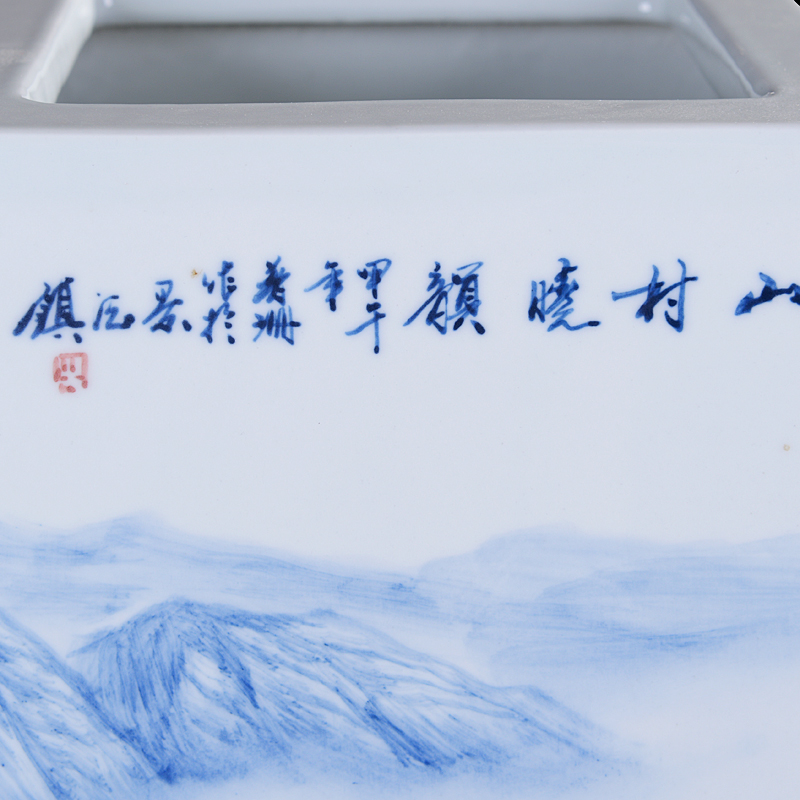 山村曉韻 甲午年 珊作於景德鎮